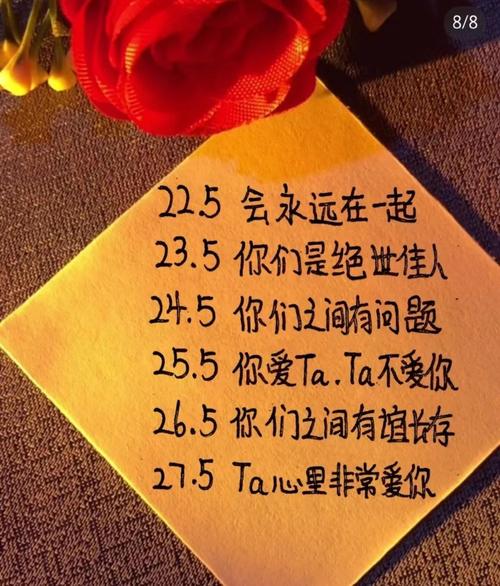 8/8
22.5 会永远在一起
23.5 你们是绝世佳人
24.5 你们之间有问题
25.5 你爱Ta.Ta不爱你
26.5 你们之间有谊长存
27.5 Ta心里非常爱你